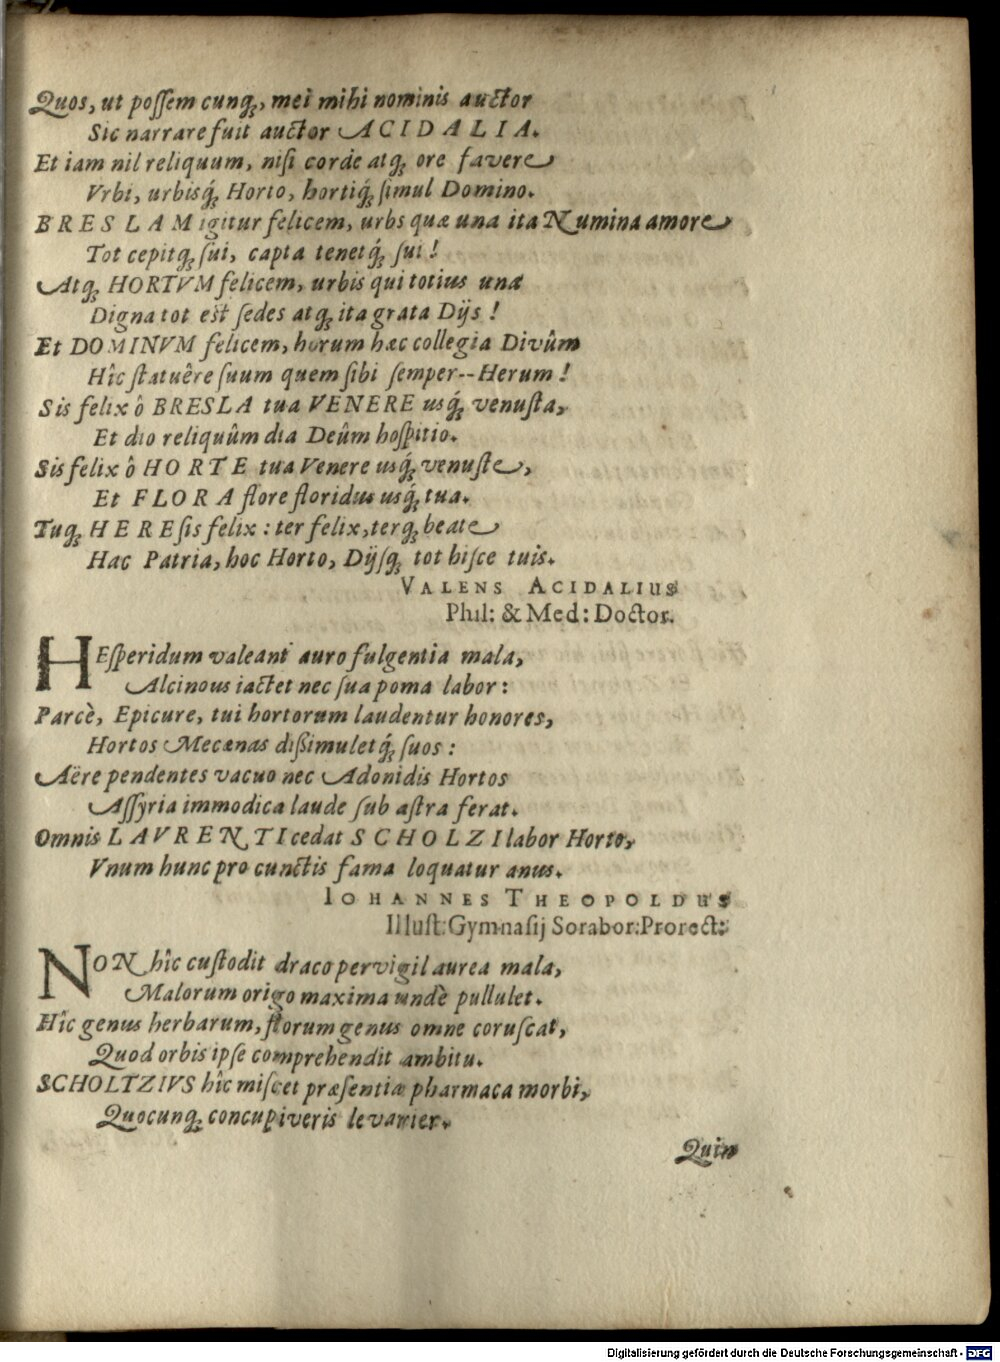 Quos, ut poſſem cunq;, mei mihi nominis auctor
Sic narrare fuit auctor ACIDALIA.
Et iam nil reliquum, niſi corde atq; ore favere
Vrbi, urbisq́; Horto, hortiq́; ſimul Domino.
BRESLAM igitur felicem, urbs quæ una ita Numina amore
Tot cepitq; ſui, capta tenetq́; ſui!
Atq; HORTVM felicem, urbis qui totius una
Digna tot est ſedes atq; ita grata Dijs!
Et DOMINVM felicem, horum hæc collegia Divûm
Hîc ſtatuêre ſuum quem ſibi ſemper--Herum!
Sis felix ô BRESLA tua VENERE usq́; venuſta,
Et dio reliquûm dia Deûm hoſpitio.
Sis felix ô HORTE tua Venere usq́; venuſte,
Et FLORA flore floridus usq́; tua.
Tuq; HERE ſis felix: ter felix, terq; beate
Hac Patria, hoc Horto, Dijſq; tot hiſce tuis.
VALENS ACIDALIUS
Phil: & Med: Doctor.
HEſperidum valeant auro fulgentia mala,
Alcinous iactet nec ſua poma labor:
Parcè, Epicure, tui hortorum laudentur honores,
Hortos Mecænas dißimuletq́; ſuos:
Aëre pendentes vacuo nec Adonidis Hortos
Aſſyria immodica laude ſub aſtra ferat.
Omnis LAVRENTI cedat SCHOLZI labor Horto,
Vnum hunc pro cunctis fama loquatur anus.
IOHANNES THEOPOLDUS
Illuſt: Gymnaſij Sorabor: Prorect:
NON hîc cuſtodit draco pervigil aurea mala,
Malorum origo maxima undè pullulet.
Hîc genus herbarum, florum genus omne coruſcat,
Quod orbis ipſe comprehendit ambitu.
SCHOLTZIVS hîc miſcet præſentia pharmaca morbi,
Quocunq; concupiveris levarier.
Quin
Digitalisierung gefördert durch die Deutsche Forschungsgemeinschaft - DFG